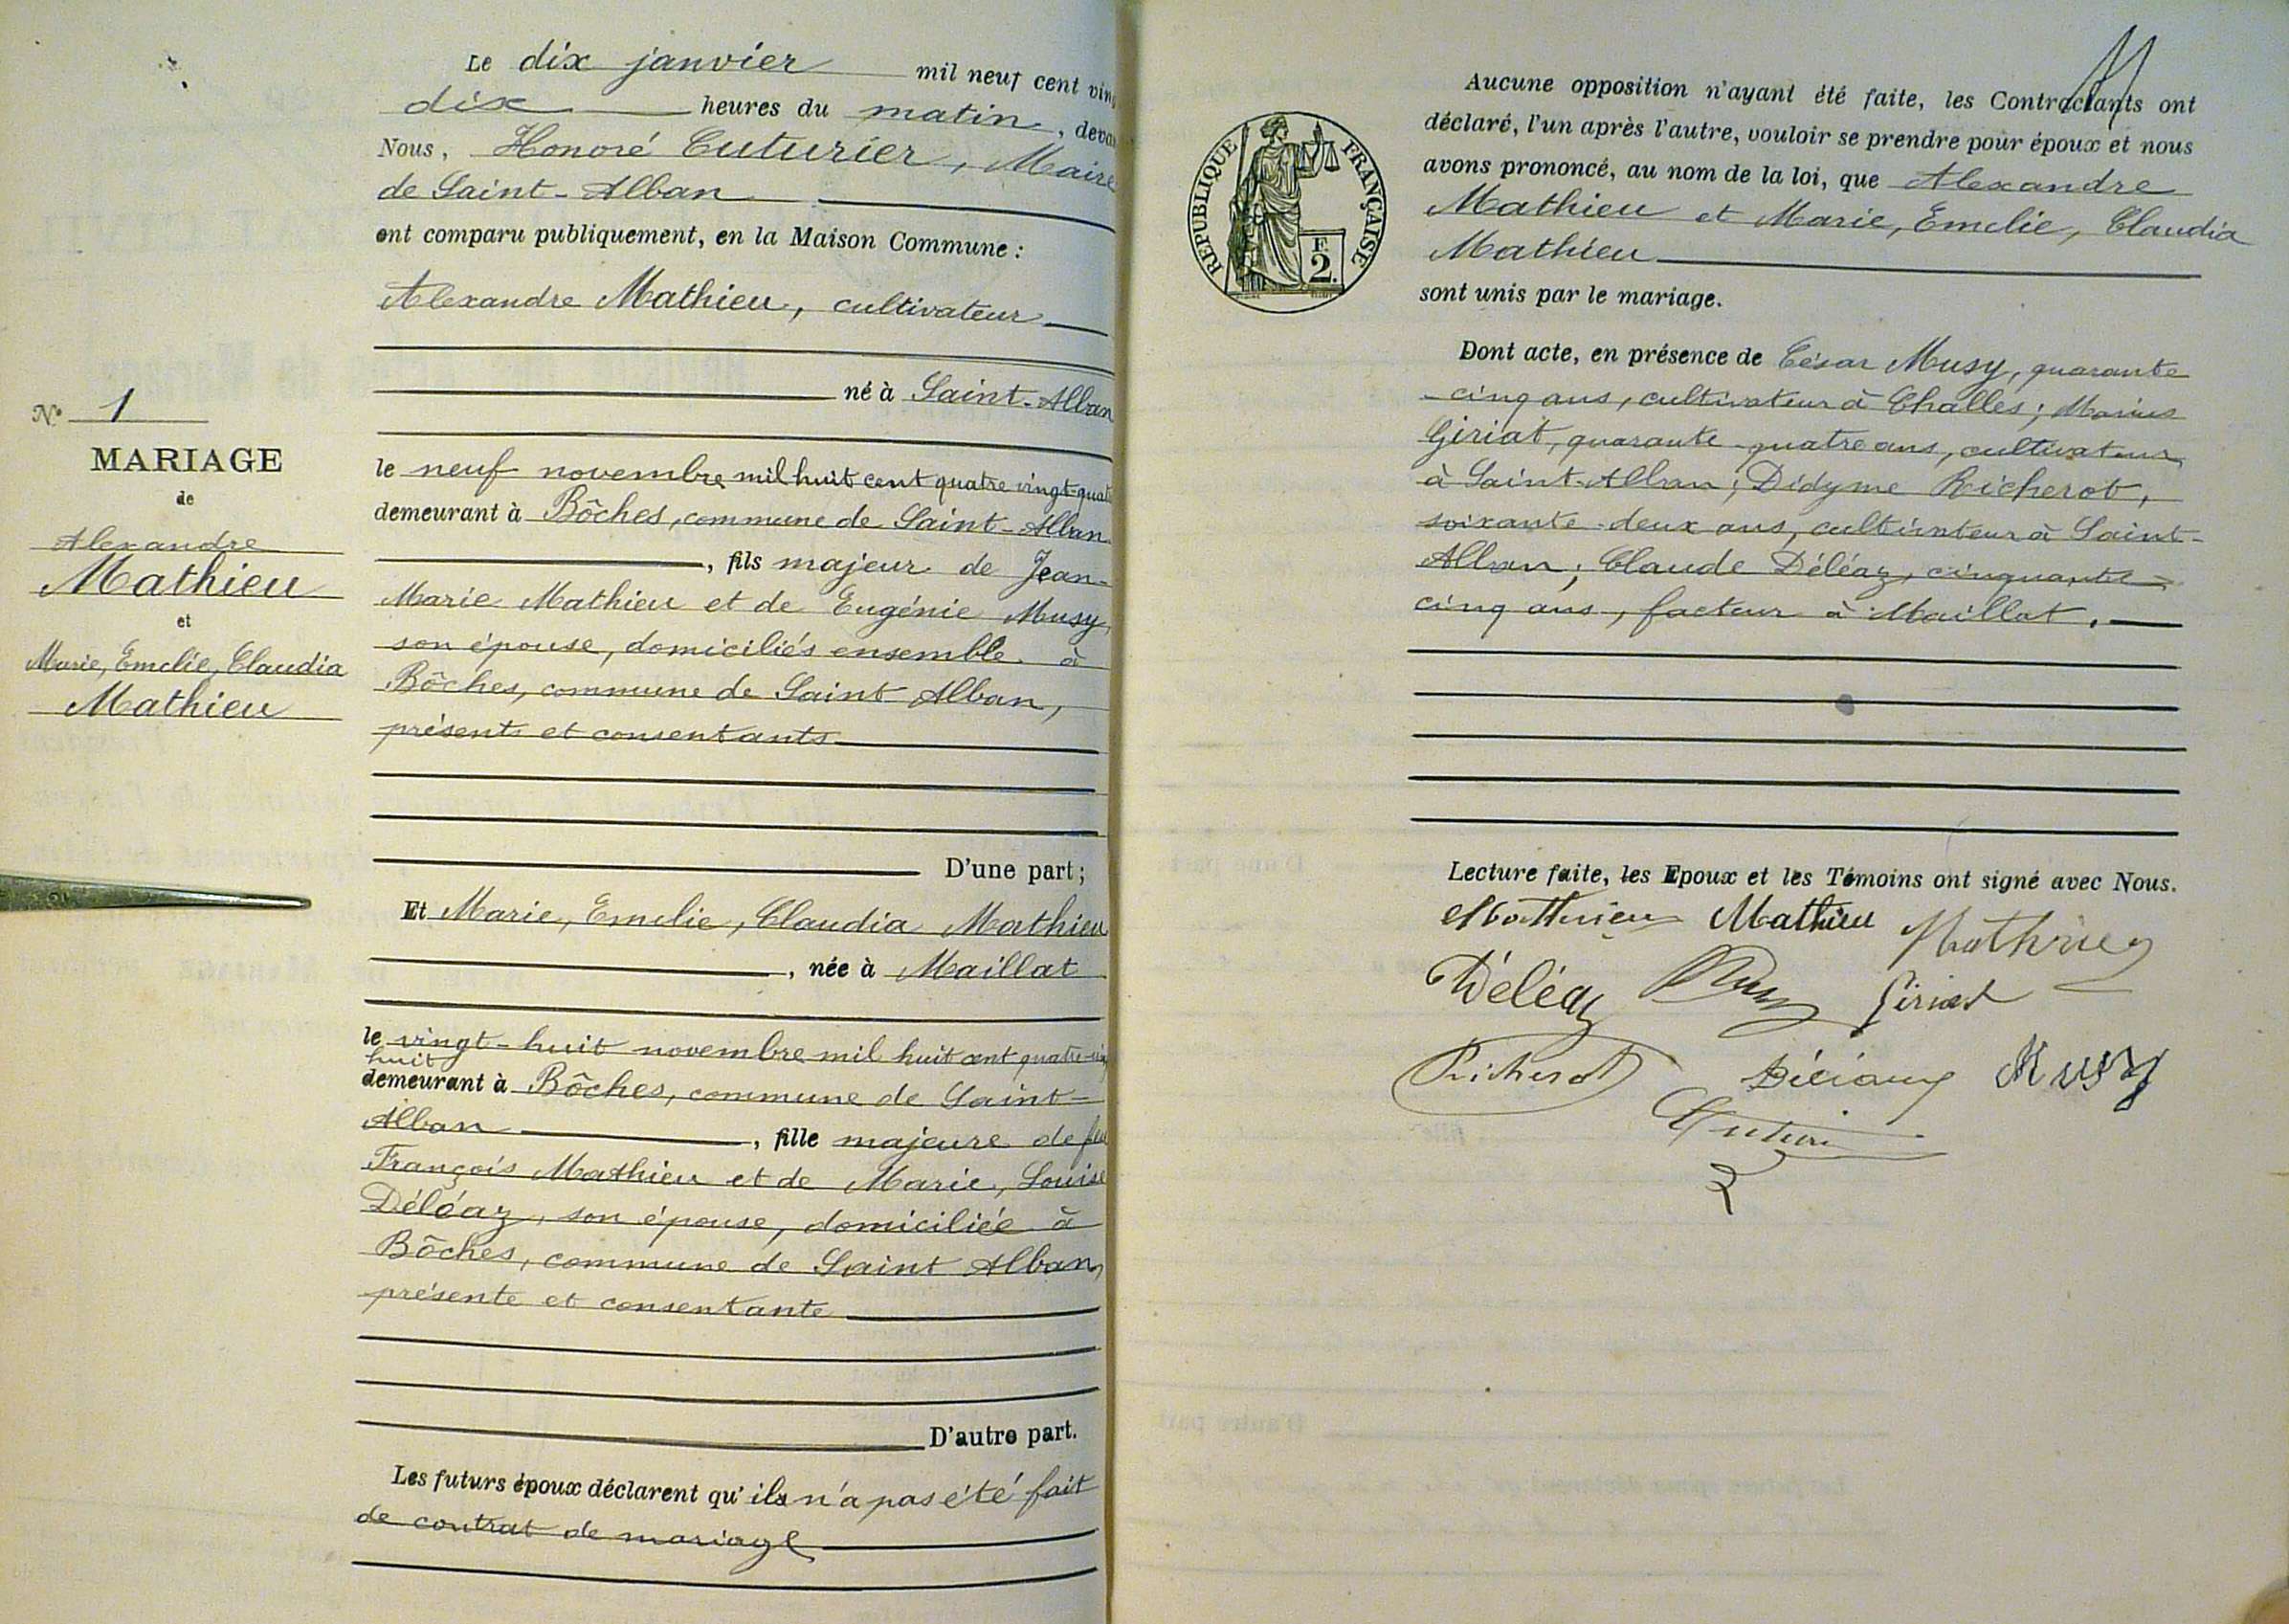 Le dix janvier mil neuf cent vin
dix heures du matin, deva
Nous, Honoré Cuturier, Maire
de Saint-Alban
ont comparu publiquement, en la Maison Commune :
Alexandre Mathieu, cultivateur
né à Saint-Alban
le neuf novembre mil huit cent quatre vingt-quat
demeurant à Bôches, commune de Saint-Alban
, fils majeur de Jean-
Marie Mathieu et de Eugénie Musy
son épouse, domiciliés ensemble à
Bôches, commune de Saint Alban,
présents et consentants
D'une part ;
Et Marie, Emelie, Claudia Mathieu
, née à Maillat
le vingt-huit novembre mil huit cent quatre-vin
huit
demeurant à Bôches, commune de Saint-
Alban , fille majeure de feu
François Mathieu et de Marie, Louise
Déléaz, son épouse, domiciliée à
Bôches, commune de Saint Alban,
présente et consentante
D'autre part.
Les futurs époux déclarent qu'il n'a pas été fait
de contrat de mariage
N° 1
MARIAGE
de
Alexandre
Mathieu
et
Marie, Emelie, Claudia
Mathieu
RÉPUBLIQUE FRANÇAISE
F.
2.
Aucune opposition n'ayant été faite, les Contractants ont
déclaré, l'un après l'autre, vouloir se prendre pour époux et nous
avons prononcé, au nom de la loi, que Alexandre
Mathieu et Marie, Emelie, Claudia
Mathieu
sont unis par le mariage.
Dont acte, en présence de César Musy, quarante
-cinq ans, cultivateur à Challes ; Marius
Giriat, quarante-quatre ans, cultivateur
à Saint-Alban ; Didyme Richerot,
soixante-deux ans, cultivateur à Saint-
Alban ; Claude Déléaz, cinquante-
cinq ans, facteur à Maillat.
Lecture faite, les Epoux et les Témoins ont signé avec Nous.
Mathieu Mathieu Mathieu
Déléaz Musy Giriat
Richerot Musy
Cuturier